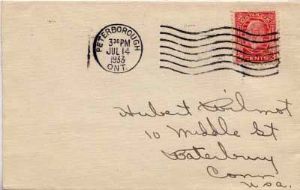 PETERBOROUGH
3 30 PM
JUL 14
1933
ONT.
CENTS
Hubert Wilmot
10 Middle St
Waterbury
Conn
U.S.A.